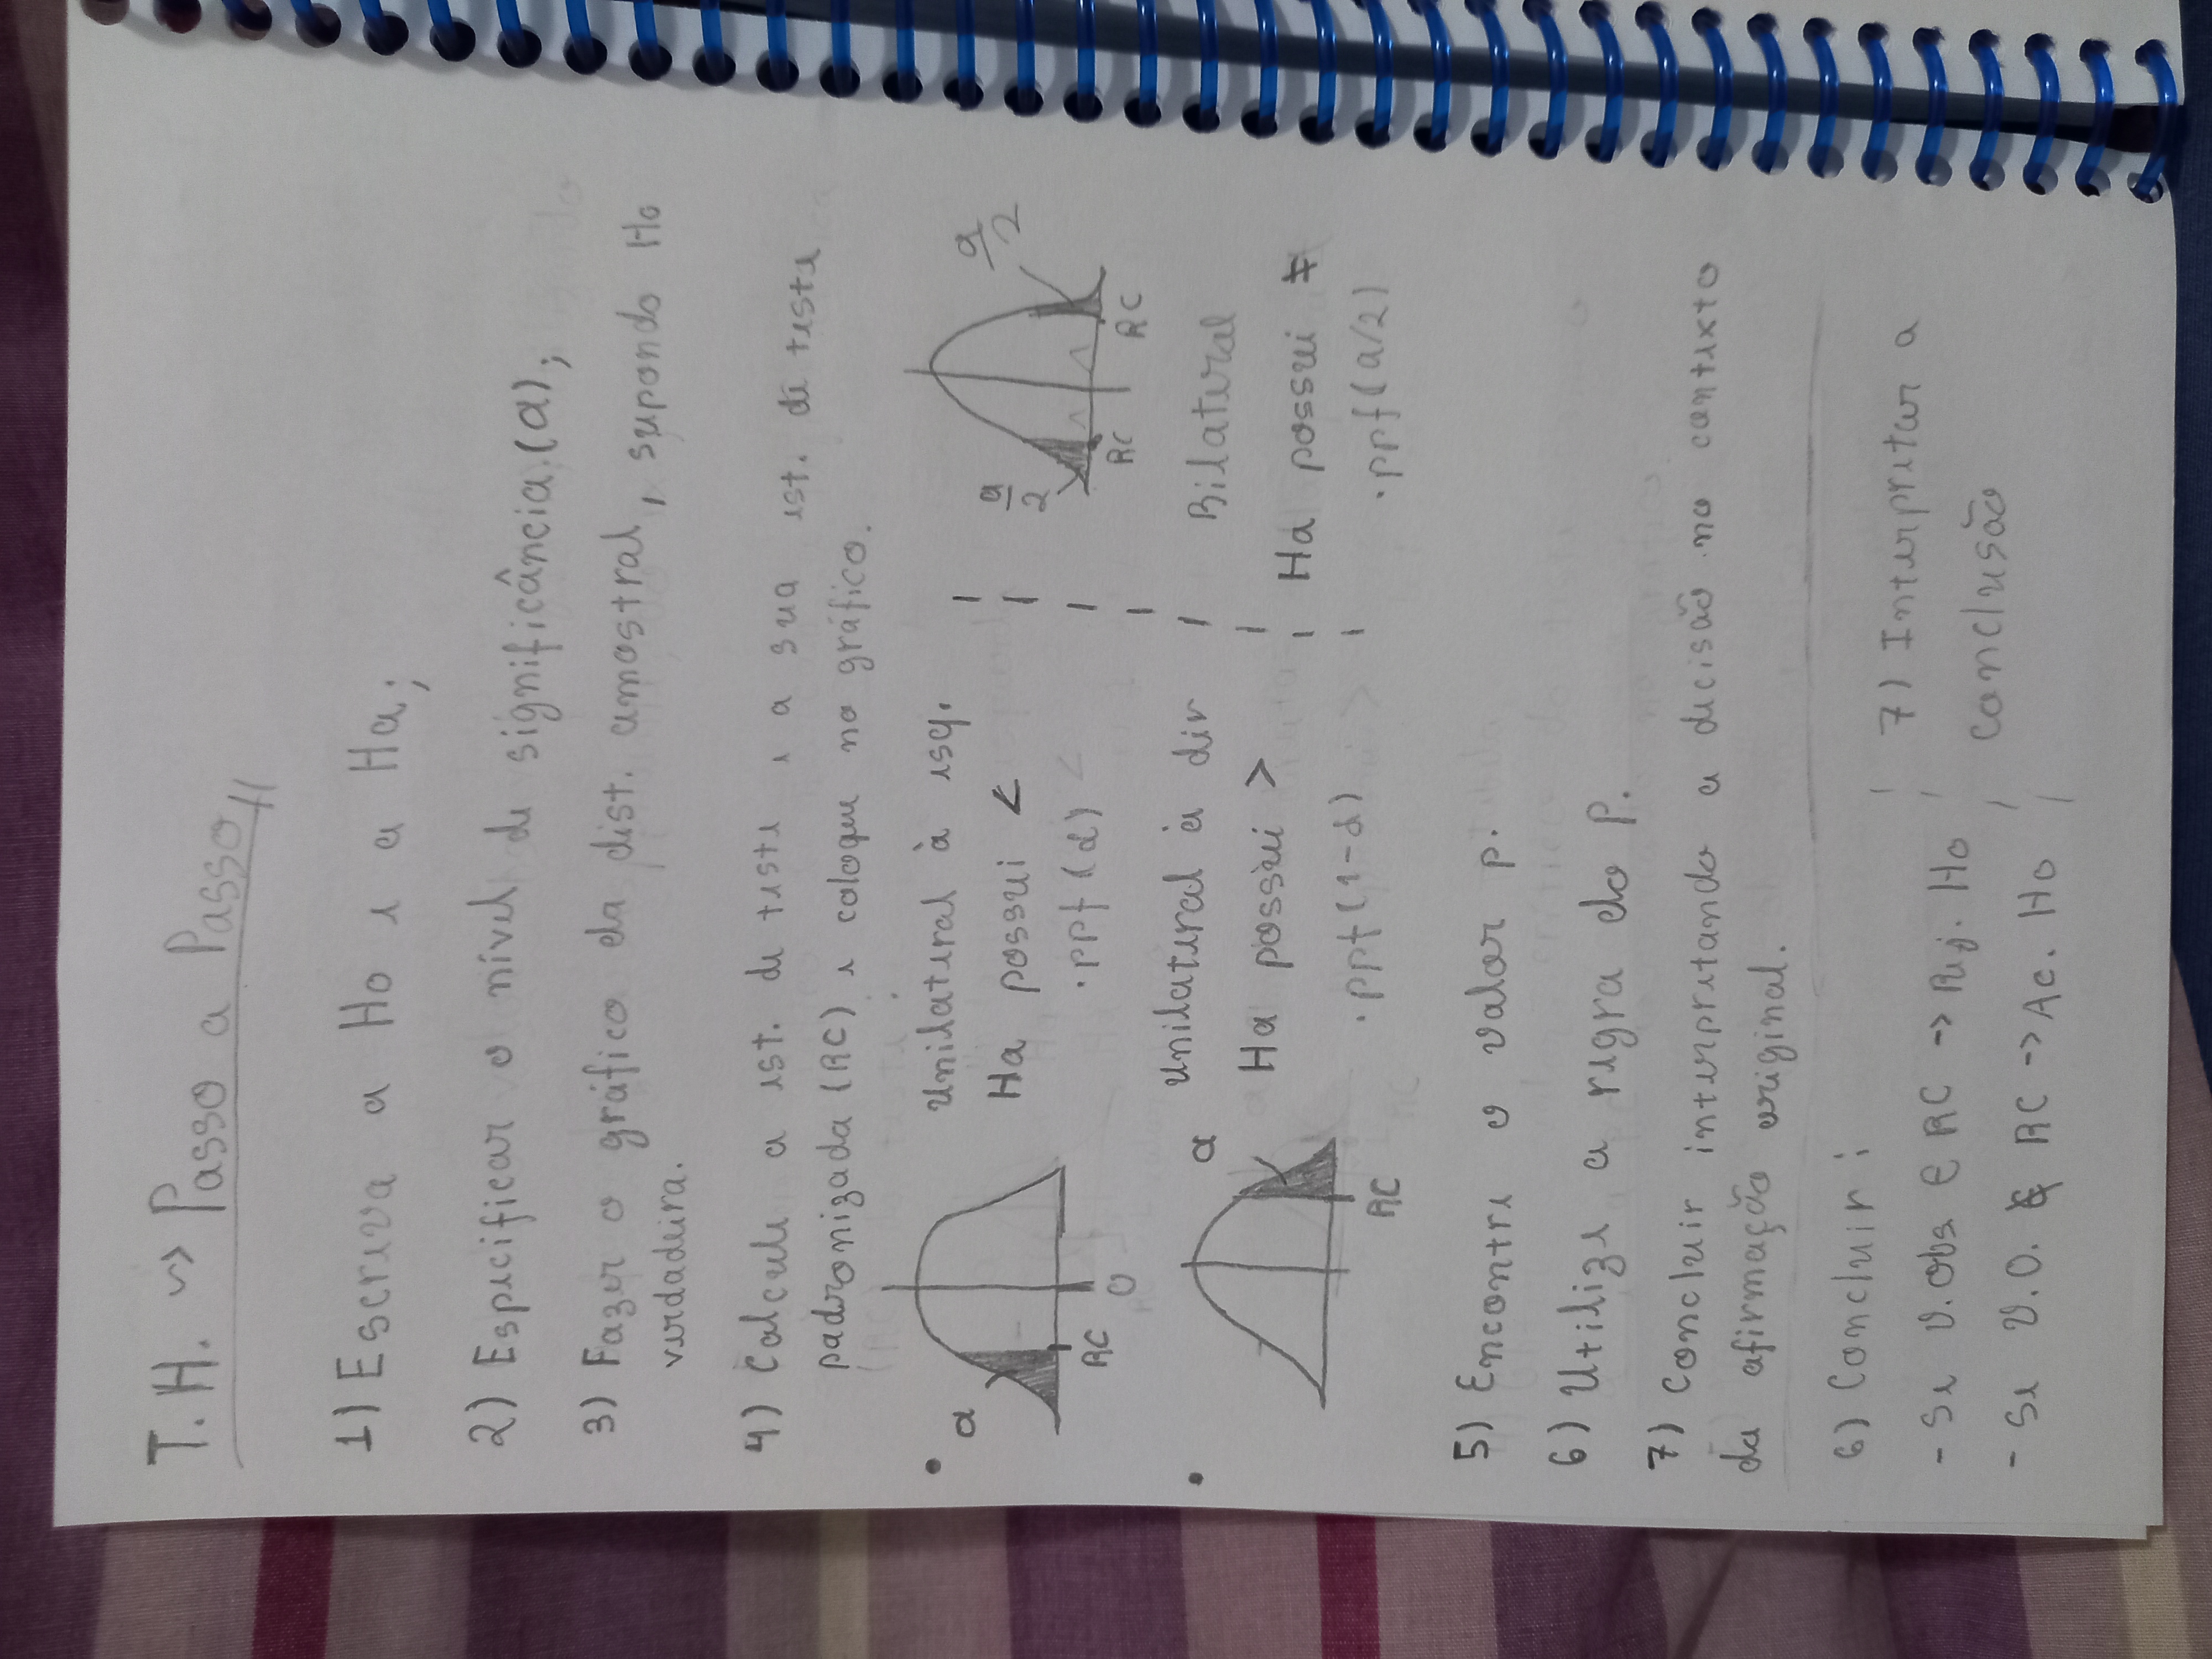 T.H. ~> Passo a Passo
1) Escreva a Ho e a Ha;
2) Especificar o nível de significância (α);
3) Fazer o gráfico da dist. amostral, supondo Ho
verdadeira.
4) Calcule a est. de teste e a sua est. de teste
padronizada (RC) e coloque no gráfico.
α
RC
0
Unilateral à esq.
Ha possui <
.ppf(α)
α
RC
Unilateral à dir
Ha possui >
.ppf(1-α)
α/2
α/2
RC
RC
Bilateral
Ha possui ≠
.ppf(α/2)
5) Encontre o valor p.
6) Utilize a regra do P.
7) Concluir interpretando a decisão no contexto
da afirmação original.
6) Concluir:
- Se V.Obs ∈ RC -> Rej. Ho
- Se V.O. ∉ RC -> Ac. Ho
7) Interpretar a
conclusão